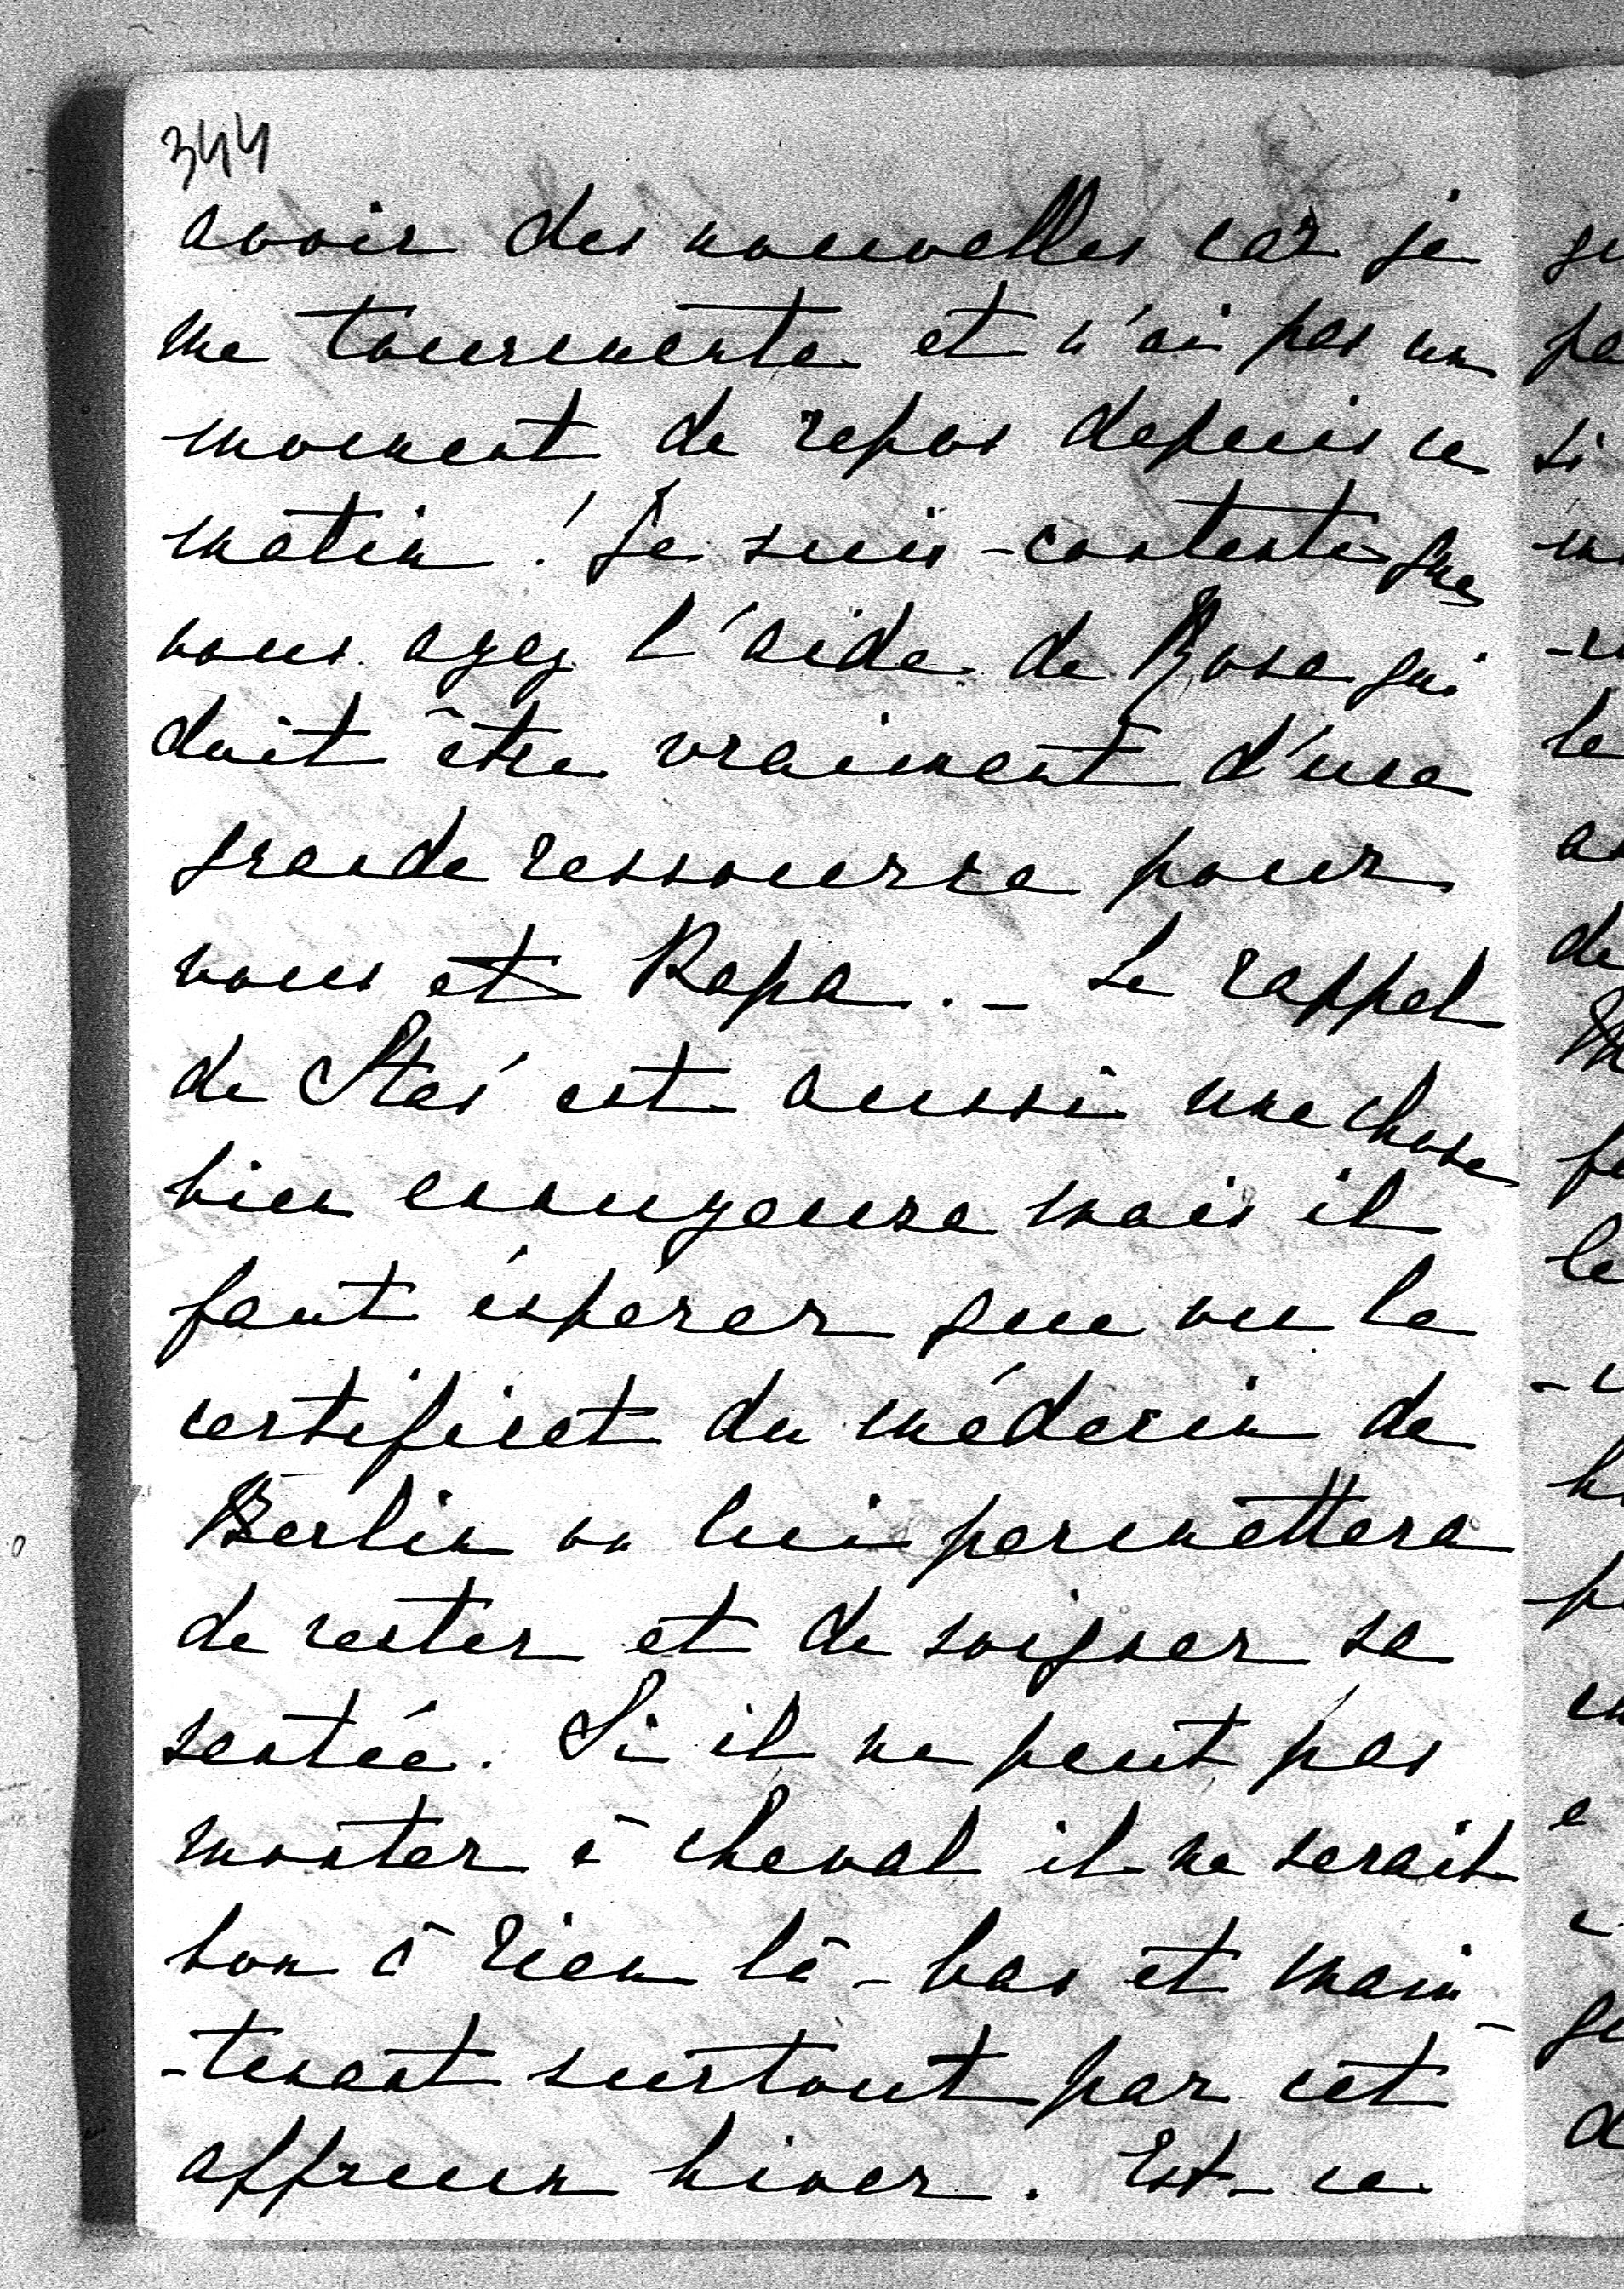 344
avoir des nouvelles car je
me tourmente et n'ai pas un
moment de repos depuis ce
matin! Je suis contente que
vous ayez l'aide de Rose qui
doit être vraiment d'une
grande ressource pour
vous et Papa. - Le rappel
de Stas' est aussi une chose
bien ennuyeuse mais il
faut éspérer que vu le
certificat du médecin de
Berlin on lui permettera
de rester et de soigner sa
santée. Si il ne peut pas
monter à cheval il ne serait
bon à rien là-bas et main-
-tenant surtout par cet
affreux hiver. Est-ce